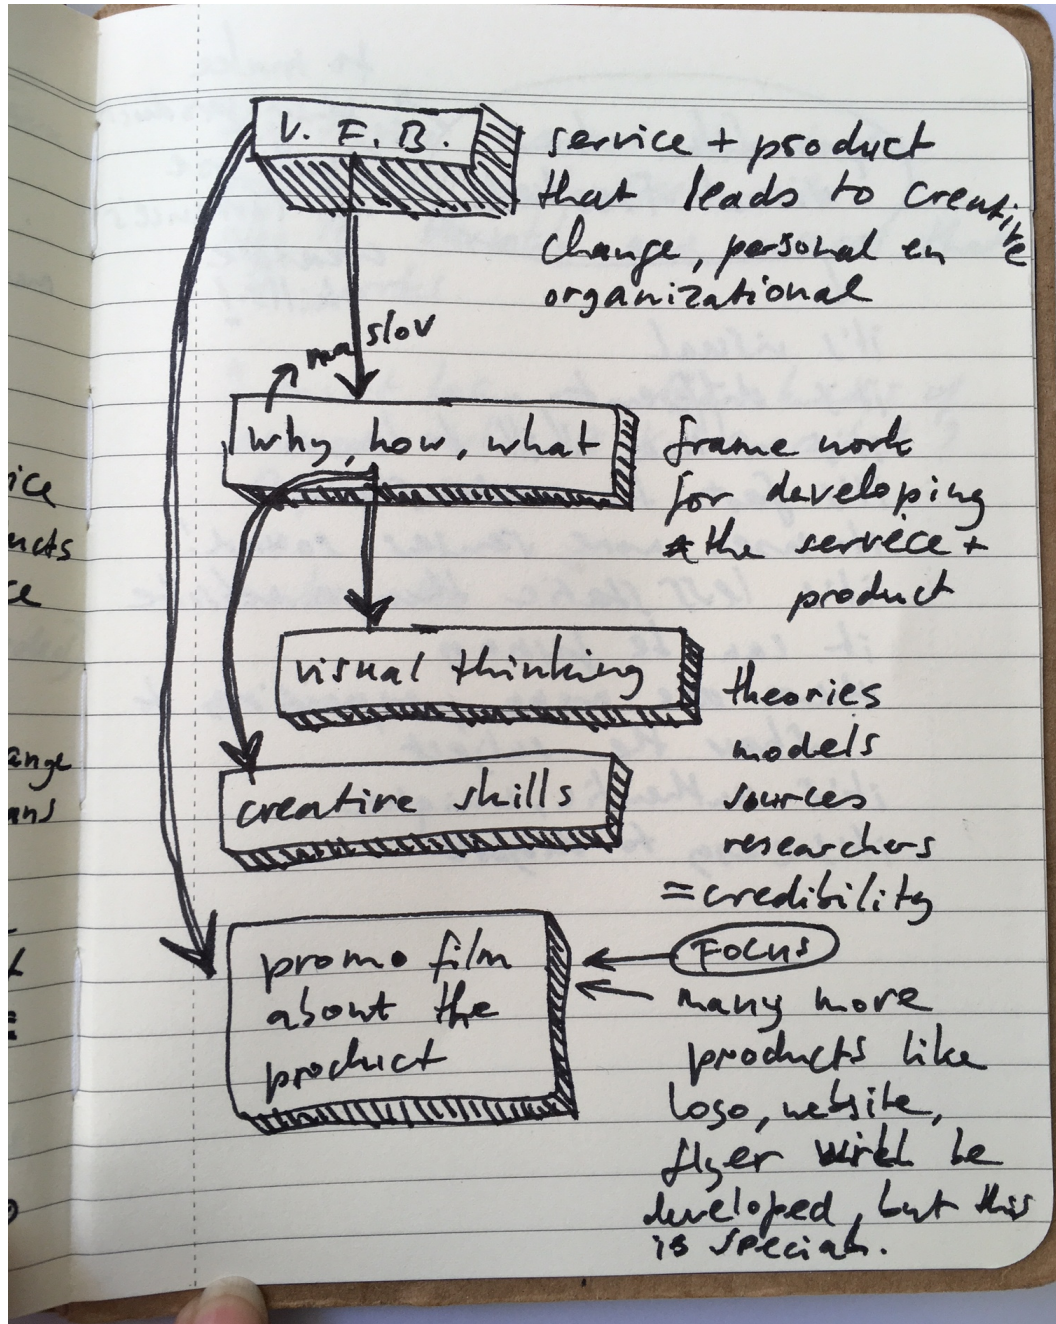 V. F. B.
service + product
that leads to creative
change, personal en
organizational
maslov
why, how, what
frame work
for developing
the service +
product
visual thinking
theories
models
sources
researchers
= credibility
creative skills
promo film
about the
product
FOCUS
many more
products like
logo, website,
flyer will be
developed, but this
is special.
ice
ucts
ce
ange
ans